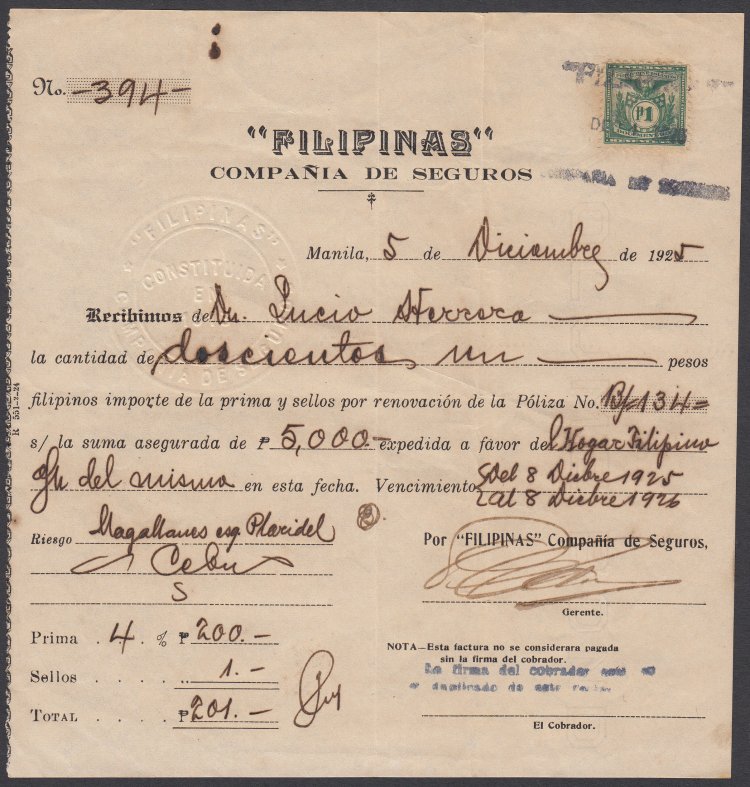 No. -394-
P1
"FILIPINAS"
COMPAÑIA DE SEGUROS
COMPAÑIA DE SEGUROS
"FILIPINAS"
CONSTITUIDA
EN
COMPAÑIA DE SEGUROS
Manila, 5 de Diciembre de 1925
Recibimos de Dr. Lucio Herrera
la cantidad de doscientos un pesos
filipinos importe de la prima y sellos por renovación de la Póliza No. B/134-
s/ la suma asegurada de ₱ 5,000- expedida a favor del Hogar Filipino
y/u del mismo en esta fecha. Vencimiento Del 8 Dicbre 1925
al 8 Dicbre 1926
Riesgo Magallanes esq Plaridel
Cebu
S
Por "FILIPINAS" Compañía de Seguros,
Gerente.
Prima . 4. % ₱ 200.-
Sellos . . . . . . 1.-
TOTAL . . . . ₱ 201.-
NOTA—Esta factura no se considerara pagada
sin la firma del cobrador.
La firma del cobrador
duplicado de este
El Cobrador.
R 551-2-24